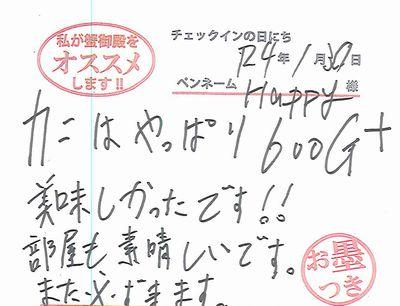 私が蟹御殿を
オススメ
します!!
チェックインの日にち
R4年1月30日
ペンネーム Happy 様
カニはやっぱり600G+
美味しかったです!!
部屋も素晴しいです。
また行きます。
お墨
つき